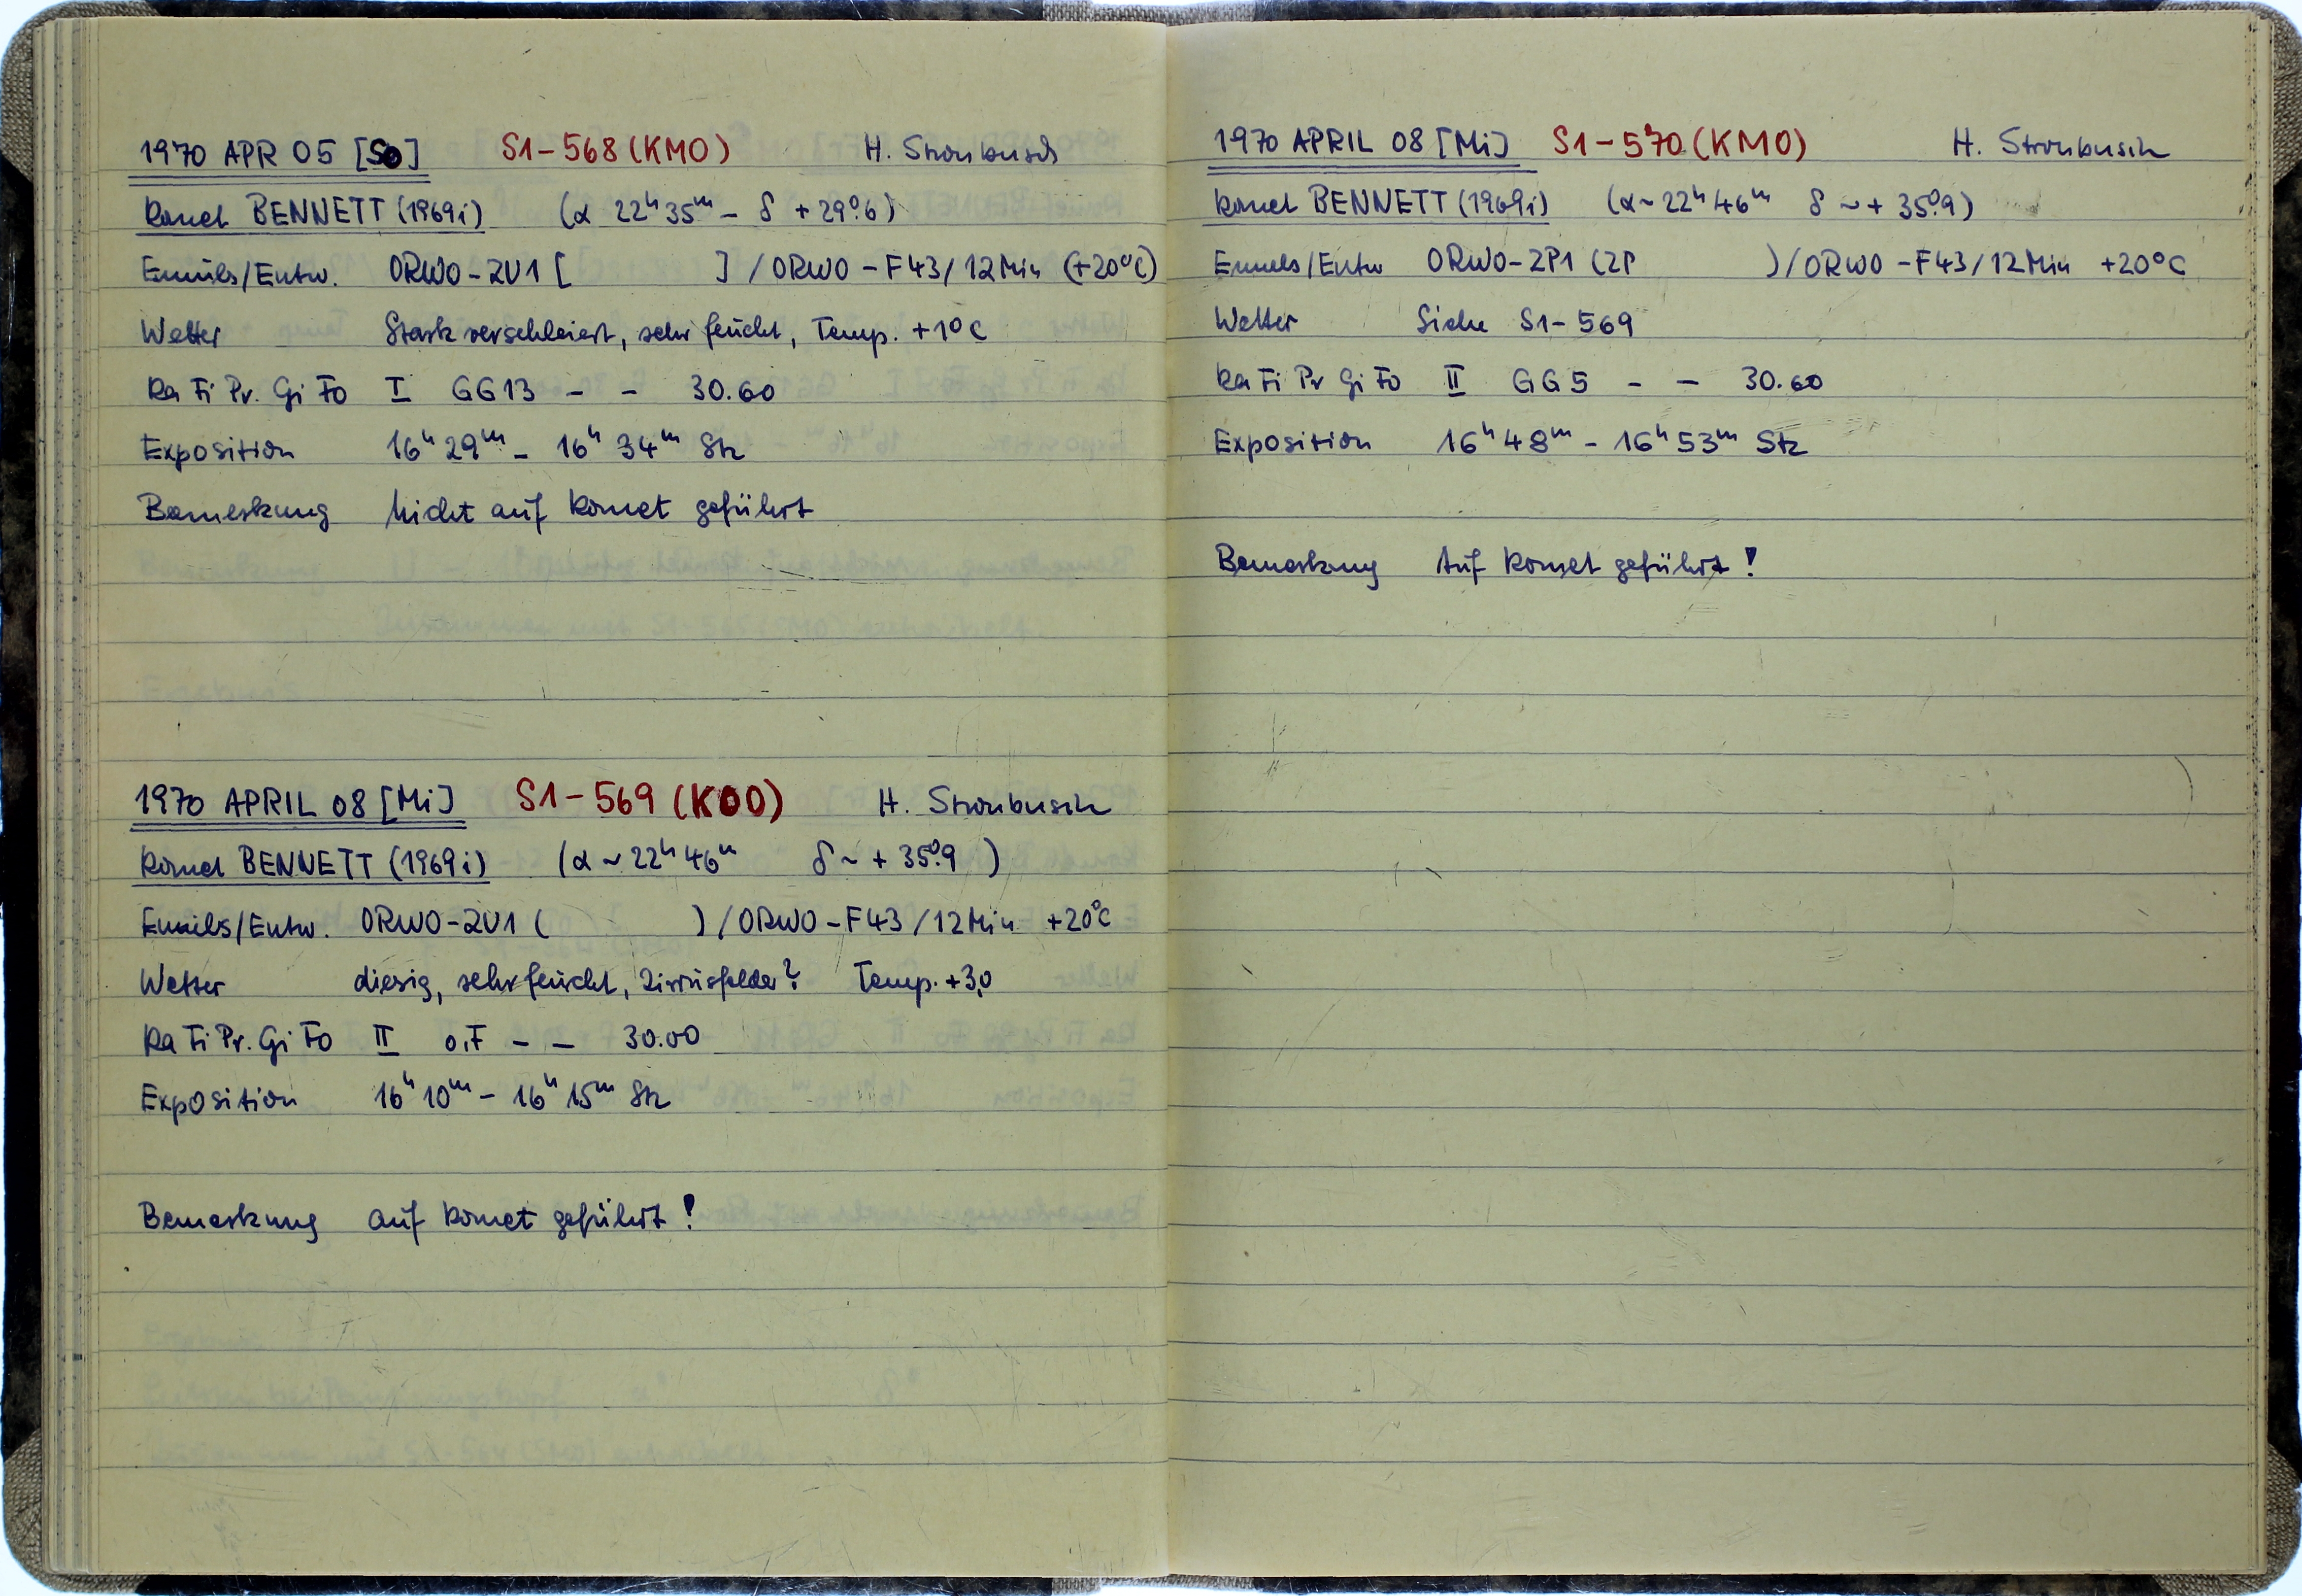 1970 APR 05 [So] S1-568 (KMO) H. Stroubusch
Komet BENNETT (1969i) (α 22ʰ 35ᵐ – δ +29°.6)
Emuls/Entw. ORWO-ZU1 [ ] / ORWO – F43/12Min (+20°C)
Wetter Stark verschleiert, sehr feucht, Temp. +1°C
Ka Fi Pr. Gi Fo I GG13 – – 30.60
Exposition 16ʰ 29ᵐ – 16ʰ 34ᵐ Stz
Bemerkung Nicht auf Komet geführt
1970 APRIL 08 [Mi] S1-569 (KOO) H. Stroubusch
Komet BENNETT (1969i) (α ~ 22ʰ 46ᵐ δ ~ + 35°.9 )
Emuls/Entw. ORWO-ZU1 ( ) / ORWO – F43 /12Min +20°C
Wetter diesig, sehr feucht, Zirrusfelder? Temp. +3,0
Ka Fi Pr. Gi Fo II o.F – – 30.00
Exposition 16ʰ 10ᵐ – 16ʰ 15ᵐ Stz
Bemerkung auf Komet geführt !
1970 APRIL 08 [Mi] S1-570 (KMO) H. Stroubusch
Komet BENNETT (1969i) (α ~ 22ʰ 46ᵐ δ ~ + 35°.9)
Emuls/Entw ORWO-ZP1 (ZP ) / ORWO – F43/12Min +20°C
Wetter Siehe S1-569
Ka Fi Pr Gi Fo II GG5 – – 30.60
Exposition 16ʰ 48ᵐ – 16ʰ 53ᵐ Stz
Bemerkung Auf Komet geführt !